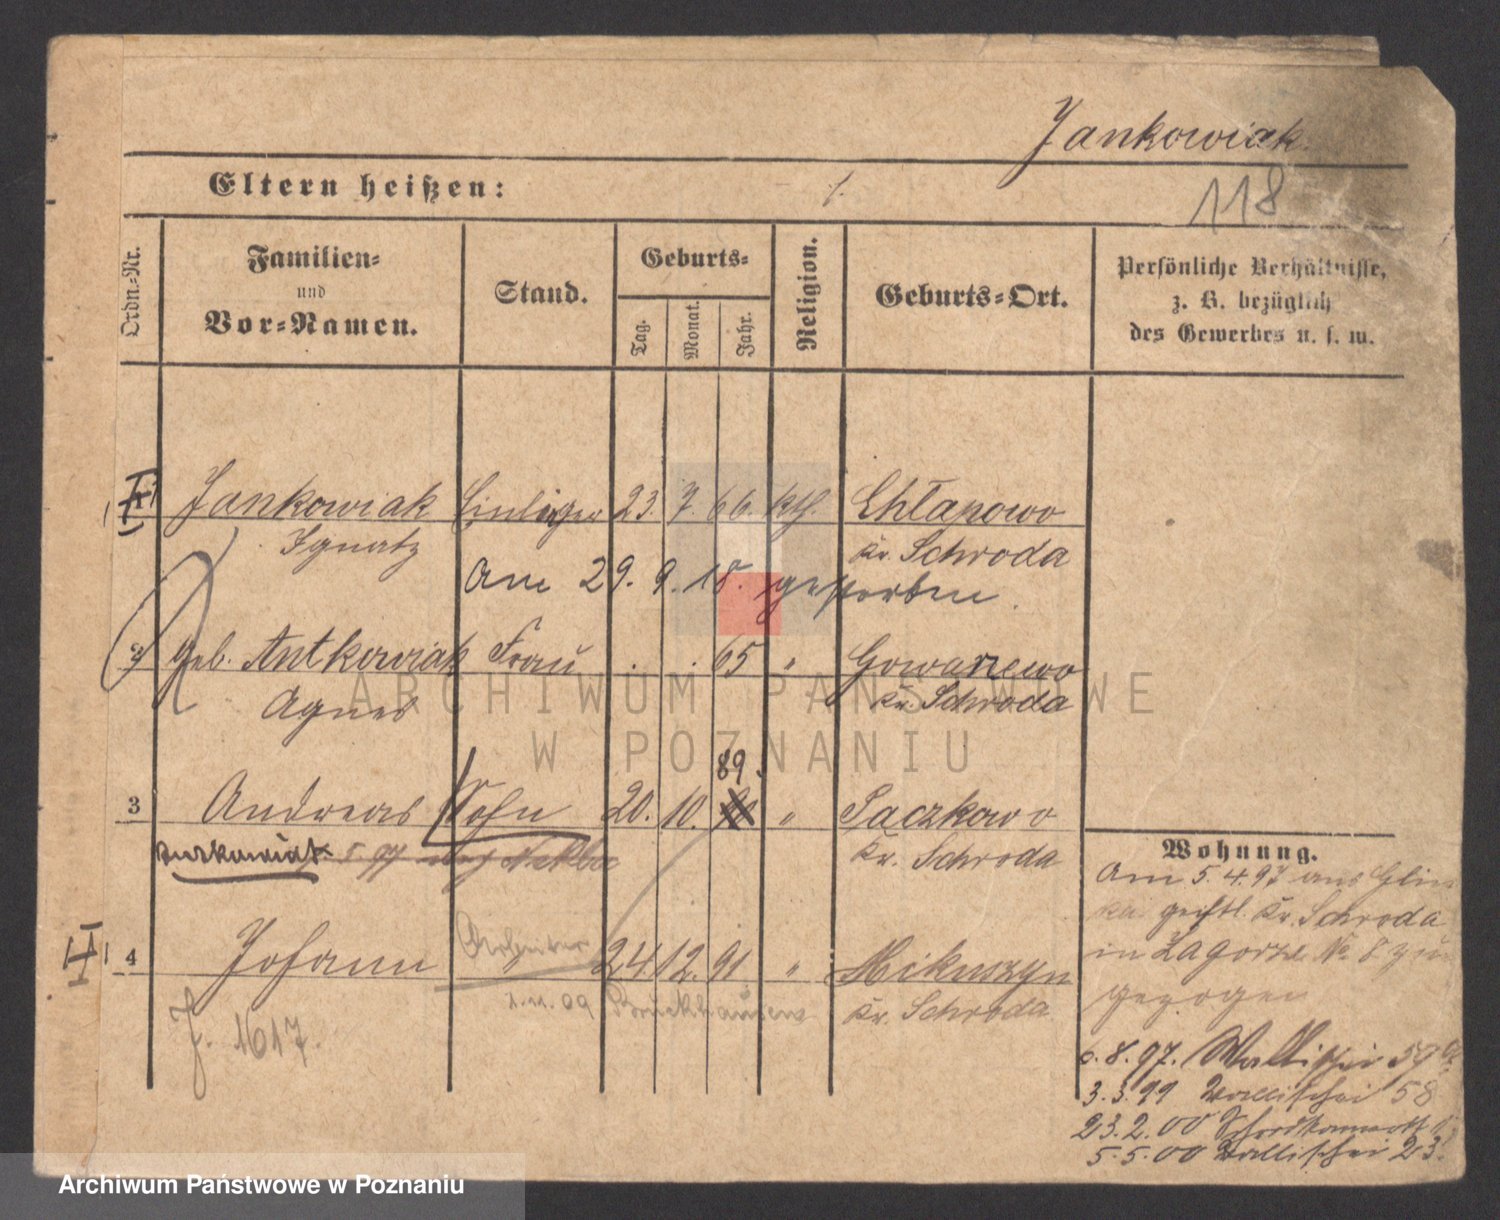 Jankowiak.
Eltern heißen:
118
Ordn.-Nr.
Familien- und Vor-Namen.
Stand.
Geburts-
Tag.
Monat.
Jahr.
Religion.
Geburts-Ort.
Persönliche Verhältnisse,
z. B. bezüglich
des Gewerbes u. s. w.
Jankowiak Einlieger 23. 7. 66. kth. Chłapowo
Ignatz Kr. Schroda
Am 29. 9. 18. gestorben.
2 geb. Antkowiak Frau 65 " Gowarzewo
Agnes Kr. Schroda
89.
3 Andreas Sohn 20. 10. " Paczkowo
Kr. Schroda
4 Johann Arbeiter 24 12. 91 " Mikuszyn
1.11.09 Bruckhausen Kr. Schroda
J. 1617.
Wohnung.
Am 5.4.97 aus
geistl. Kr. Schroda
in Zagorze No 8 zu
gezogen
6.8.97. Wallischei 59
3.3.99 Wallischei 58
23.2.00
5.5.00 Wallischei 23.
ARCHIWUM PAŃSTWOWE
W POZNANIU
Archiwum Państwowe w Poznaniu